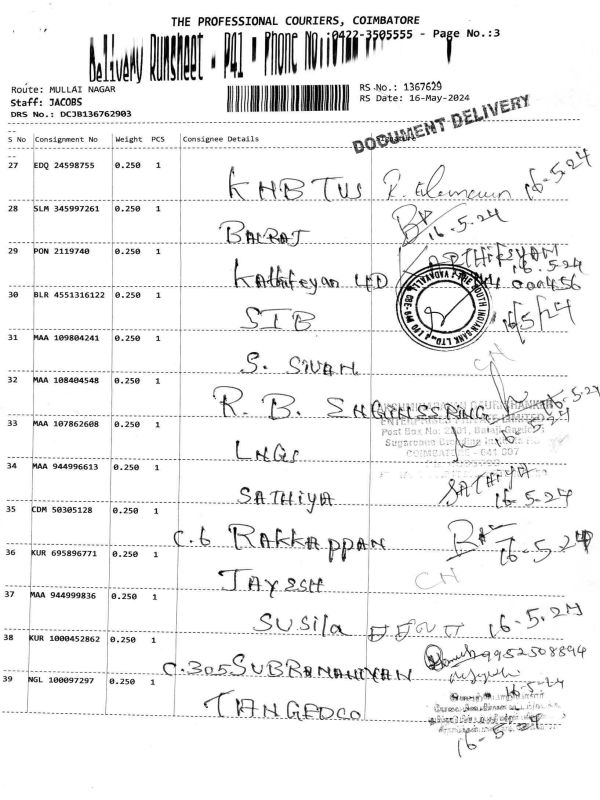 THE PROFESSIONAL COURIERS, COIMBATORE
Delivery Runsheet - P41 - Phone No: 0422-3505555 - Page No.:3
Route: MULLAI NAGAR
Staff: JACOBS
DRS No.: DCJB136762903
RS No.: 1367629
RS Date: 16-May-2024
DOCUMENT DELIVERY
S No Consignment No Weight PCS Consignee Details
27 EDQ 24598755 0.250 1
KHBTUS 16-5-24
28 SLM 345997261 0.250 1
BALRAJ 16-5-24
29 PON 2119740 0.250 1
Kathifeyan 4D 16-5-24
30 BLR 4551316122 0.250 1
SIB 16/5/24
31 MAA 109804241 0.250 1
S. SIVAN CN
32 MAA 108404548 0.250 1
R. B. ENGINSSRING 16-5-24
33 MAA 107862608 0.250 1
LNGS 16-5-24
34 MAA 944996613 0.250 1
SATHIYA SATHIYA 16-5-24
35 CDM 50305128 0.250 1
C.6 RAKKAPPAN 16-5-24
36 KUR 695896771 0.250 1
JAYESH CN
37 MAA 944999836 0.250 1
SUSila 16-5.24
38 KUR 1000452862 0.250 1
C.305 SUBRAMANIYAN 9952508894
16-5-24
39 NGL 100097297 0.250 1
TANGEDCO
16-5-24